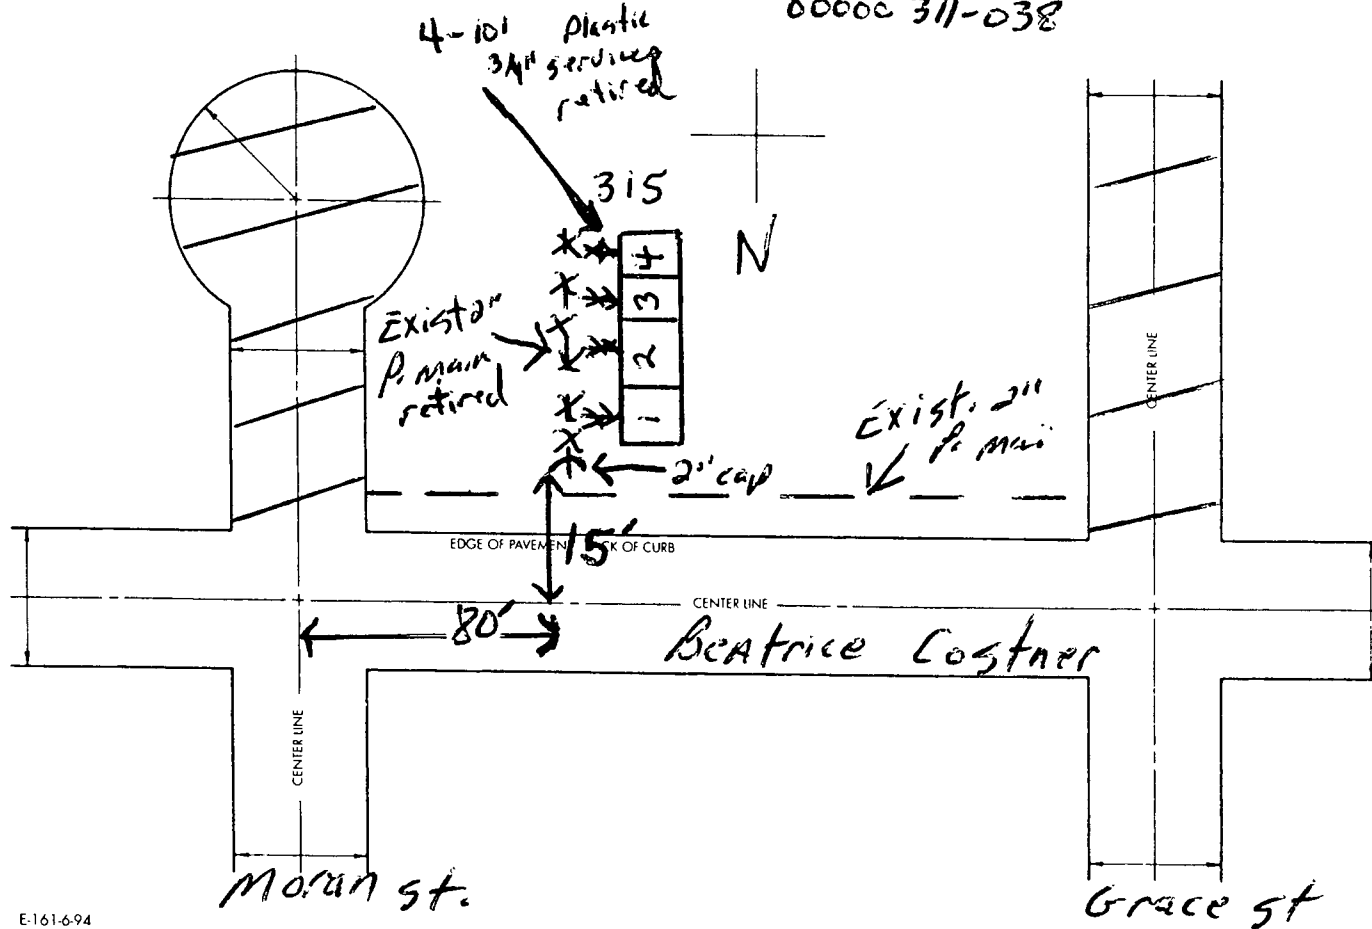 00000 311-038
4-10' Plastic
3/4" services
retired
315
N
4
3
2
1
Exist 2"
P. main
retired
Exist. 2"
P. main
2" cap
15'
EDGE OF PAVEMEN CK OF CURB
CENTER LINE
80'
CENTER LINE
Beatrice Costner
CENTER LINE
Moran st.
Grace st
E-161-6-94